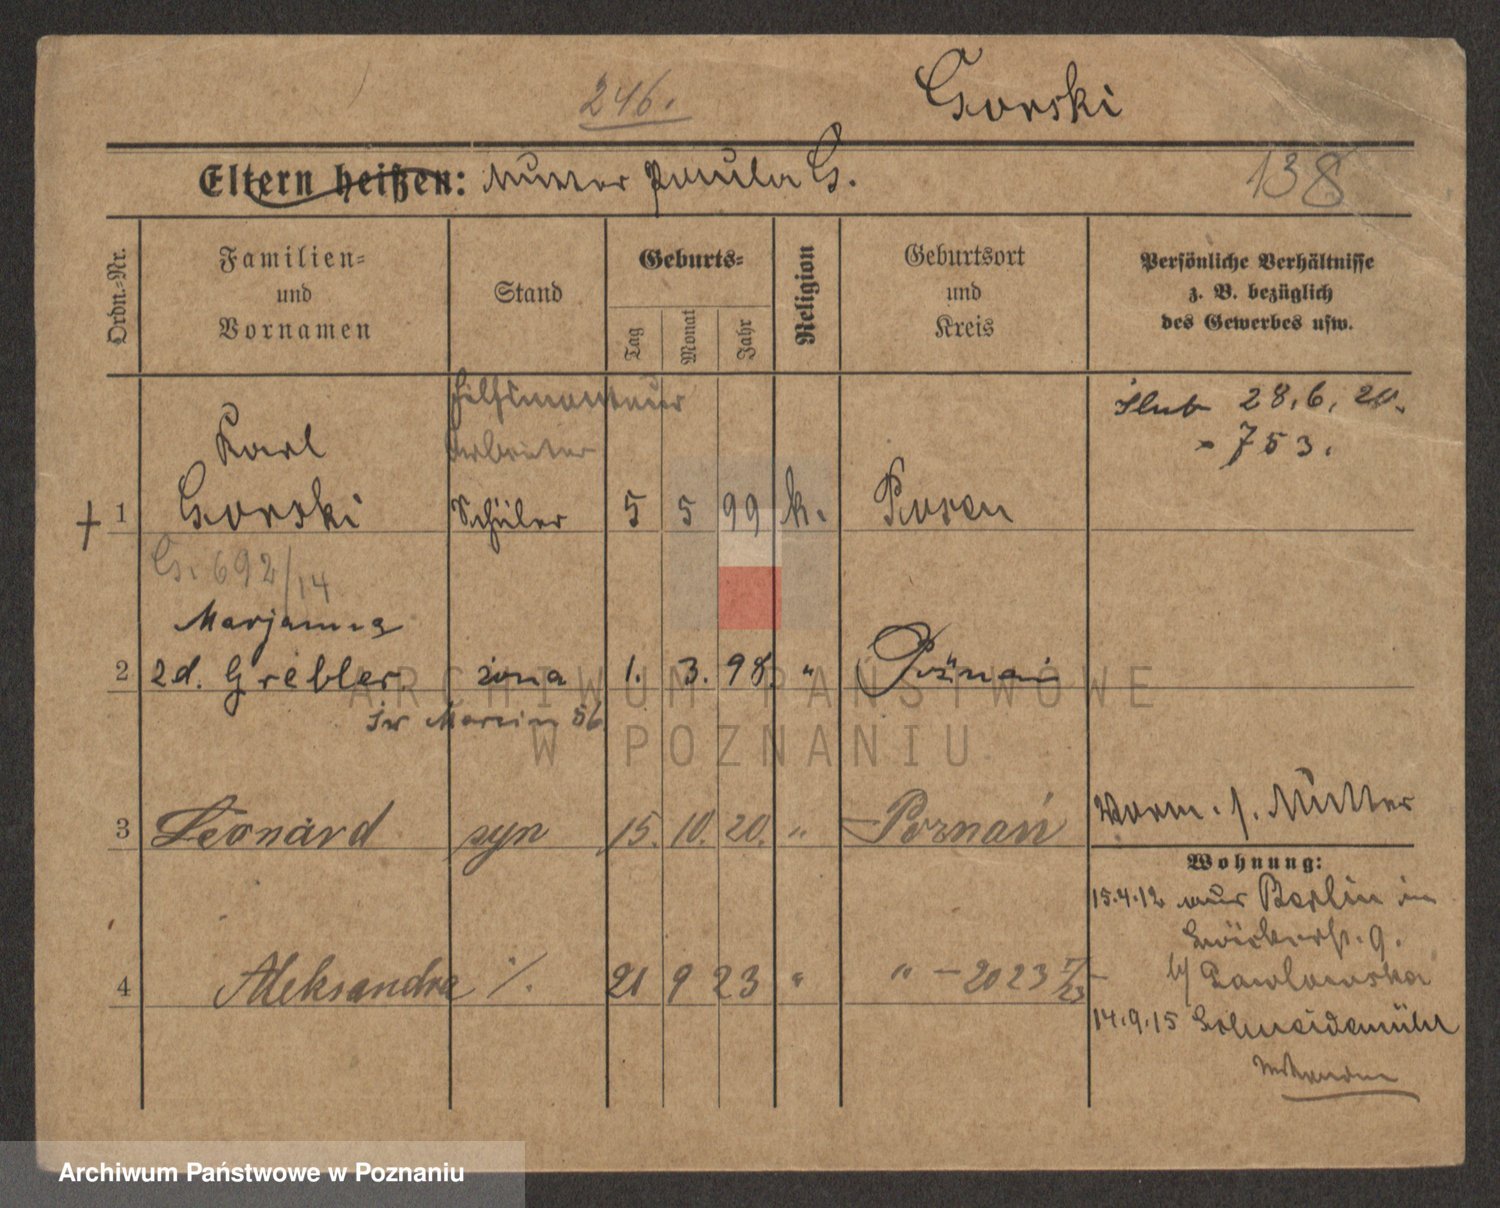 246.
Gorski
Eltern heißen: Mutter Paula G.
138
Ordn.-Nr.
Familien-
und
Vornamen
Stand
Geburts-
Tag
Monat
Jahr
Religion
Geburtsort
und
Kreis
Persönliche Verhältnisse
z. B. bezüglich
des Gewerbes usw.
Hilfsmonteur
Arbeiter
Karl
+ 1 Gorski Schüler 5 5 99 k. Posen
ślub 28.6.20.
- 753.
G. 692/14
Marjanna
2 zd. Grebler żona 1. 3. 98. " Poznań
św Marcin 56
3 Leonard syn 15. 10. 20. " Poznań
Vorm. s. Mutter
Wohnung:
15.4.12 aus Berlin in
4 Aleksandra 21 9 23 " " - 20 23
14.9.15 Schneidemühl
ARCHIWUM PAŃSTWOWE
W POZNANIU
Archiwum Państwowe w Poznaniu